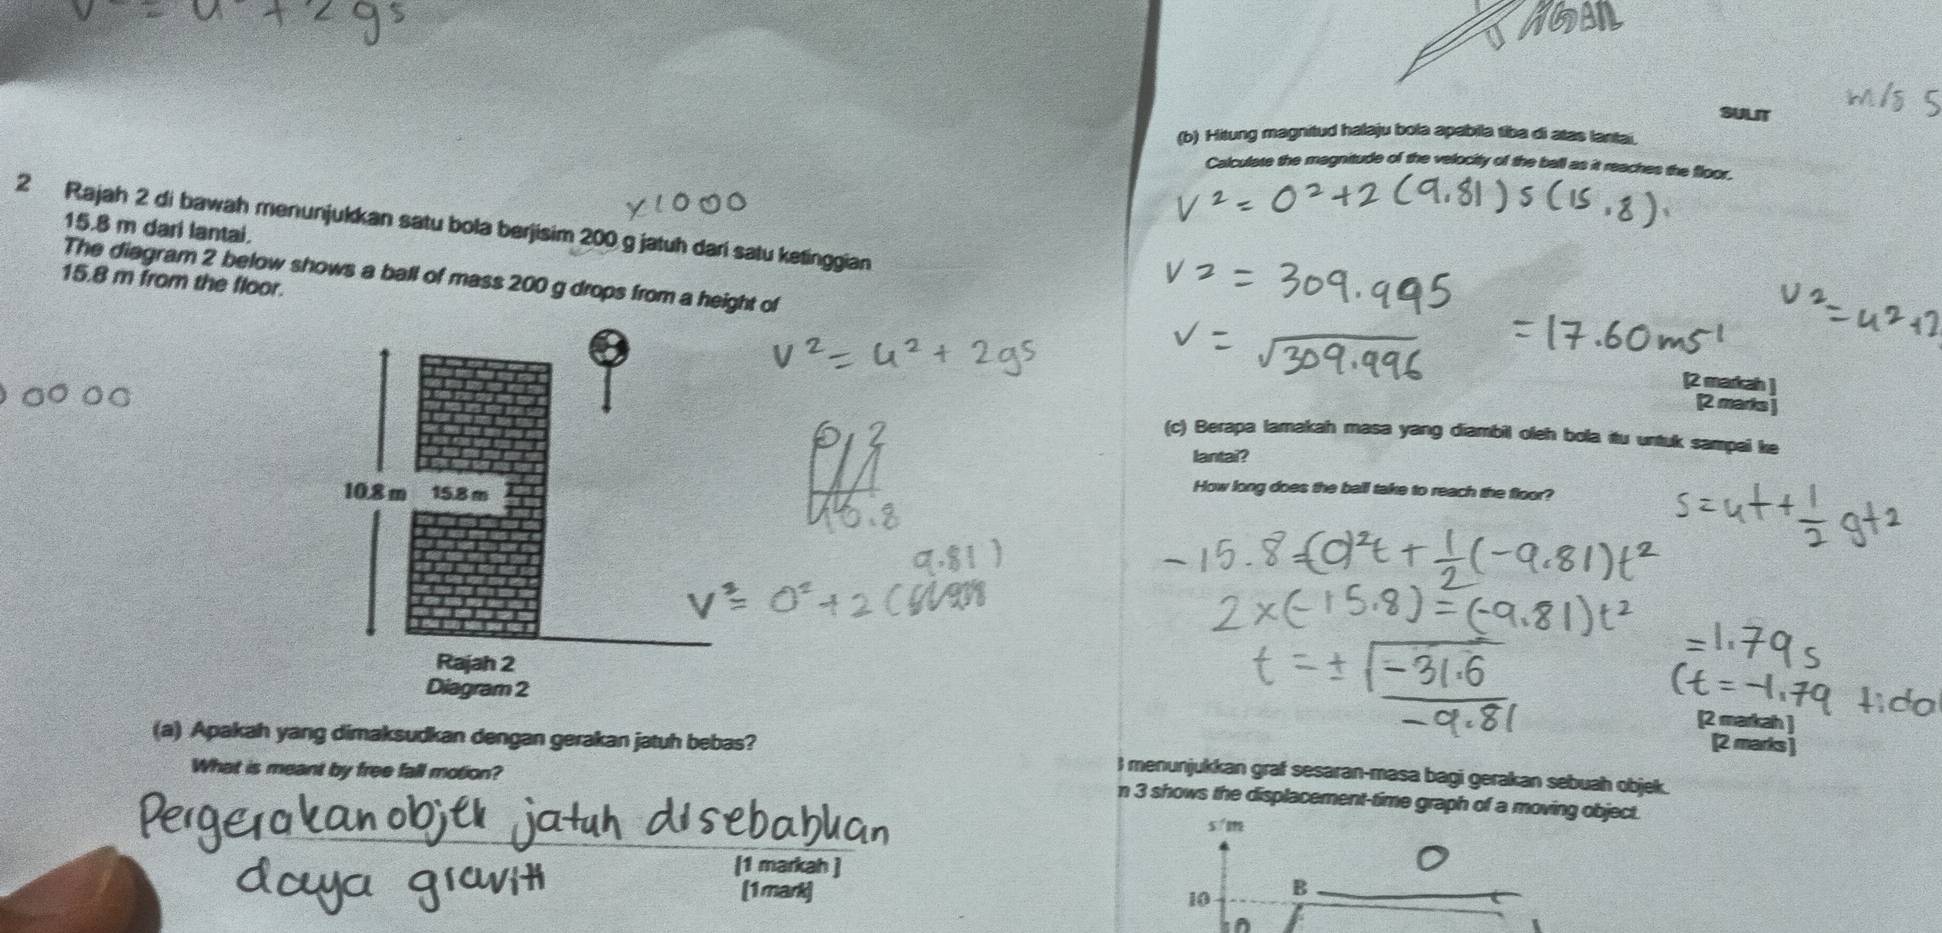 = u + 2gs
2 Rajah 2 di bawah menunjukkan satu bola berjisim 200 g jatuh dari satu ketinggian
x1000
15.8 m dari lantai.
The diagram 2 below shows a ball of mass 200 g drops from a height of
15.8 m from the floor.
v² = u² + 2gs
0000
10.8 m 15.8 m
6.8
9.81)
v² = 0² + 2(
Rajah 2
Diagram 2
(a) Apakah yang dimaksudkan dengan gerakan jatuh bebas?
What is meant by free fall motion?
Pergerakan objek jatuh disebabkan
daya graviti
[1 markah ]
[1 mark]
SULIT
m/s 5
(b) Hitung magnitud halaju bola apabila tiba di atas lantai.
Calculate the magnitude of the velocity of the ball as it reaches the floor.
v² = 0² + 2 (9.81) s (15.8).
v2 = 309.995
v = √309.996 = 17.60 ms-1
v² = u² + 2
[2 markah ]
[2 marks ]
(c) Berapa lamakah masa yang diambil oleh bola itu untuk sampai ke
lantai?
How long does the ball take to reach the floor?
s = ut + 1/2 gt2
-15.8 = (0)²t + 1/2 (-9.81)t²
2x(-15.8) = (-9.81)t²
t = ± √-31.6/-9.81 = 1.79 s
(t = -1.79 tida
[2 markah ]
[2 marks ]
menunjukkan graf sesaran-masa bagi gerakan sebuah objek.
n 3 shows the displacement-time graph of a moving object.
s/m
O
B
10